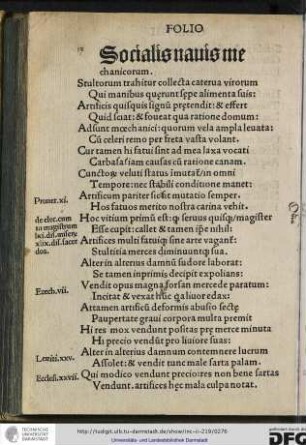 FOLIO
Socialis nauis me
chanicorum.
Stultorum trahitur collecta caterua virorum
Qui manibus quęrunt sępe alimenta suis:
Artificis quisquis signū prętendit: & effert
Quid sciat: & foueat qua ratione domum:
Adsunt mœchanici: quorum vela ampla leuata:
Cū celeri remo per freta vasta volant.
Cur tamen hi fatui sint ad mea laxa vocati
Carbasa siam causas cū ratione canam.
Cuncto & veluti status imutat in omni
Tempore: nec stabili conditione manet:
Artificum pariter sic est mutatio semper.
Hos fatuos merito nostra carina vehit.
Hoc vitium primū est: ꝙ seruus quisq magister
Esse cupit: callet & tamen ipse nihil:
Artifices multi fatuiq sine arte vagant
Stultitia merces diminuuntq sua.
Alter in alterius damnū sudore laborat:
Se tamen inprimis decipit expolians:
Vendit opus magna forsan mercede paratum:
Incitat & vexat huc qa liuor edax:
Attamen artificū deformis abusio sectę
Paupertate graui corpora multa premit
Hi res mox vendunt positas prę merce minuta
Hi precio vendūt pro liuiore suas:
Alter in alterius damnum contemnere lucrum
Assolet: & vendit tunc male sarta palam.
Qui modico vendunt preciores non bene sartas
Vendunt. artifices hęc mala culpa notat.
Prouer.xi.
de elec. com
lxi.dis.misery.
xlix.dis.sacer
dos.
Ezech.vii.
Leuiti.xxv.
Ecclesi.xxvii.
TECHNISCHE
UNIVERSITÄT
DARMSTADT
http://tudigit.ulb.tu-darmstadt.de/show/inc-ii-210/0276
Universitäts- und Landesbibliothek Darmstadt
gefördert durch die
DFG